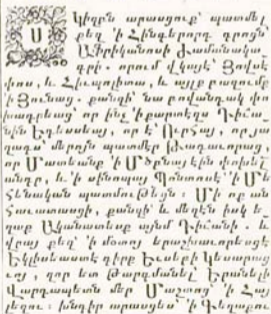 Սկիզբն արասցուք՝ պատմել
քեզ ՚ի Հինգերորդ գրոյն՝
Ափրիկանոսի Ժամանակա
գրի. որում վկայէ՝ Յովսե
փոս, և Հիպողիտա, և այլք բազումք
՚ի Յունաց. քանզի՝ նա բովանդակ փո
խադրեաց՝ որ ինչ ՚ի քարտէզս Դիւա
նին Եդեսսեայ, որ է՝ Ուրհայ, որ յա
ղագս՝ մերոյն պատմէր Թագաւորաց,
որ Մատեանք ՚ի Մծբնայ էին փոխել
անդր, և ՚ի սինոպայ Պոնտոսէ՝ ՚ի Մե
հենական պատմութեցն։ Մի ոք ան
հաւատասցի, քանզի՝ և մեզէն իսկ ե
ղաք Ականատես այնմ Դիւանի. և
վըայ քեզ՝ ՚ի մօտոյ երաշխաւորեսցէ
Եկլիսեաստէ գիրք Եւսեբի կեսարաց
ւոյ, զոր ետ Թարգմանել՝ Երանելի
Վարդապետն մեր Մաշտոց՝ ՚ի Հայ
լեզու։ խնդիր արասցես՝ ՚ի Գեղարքու